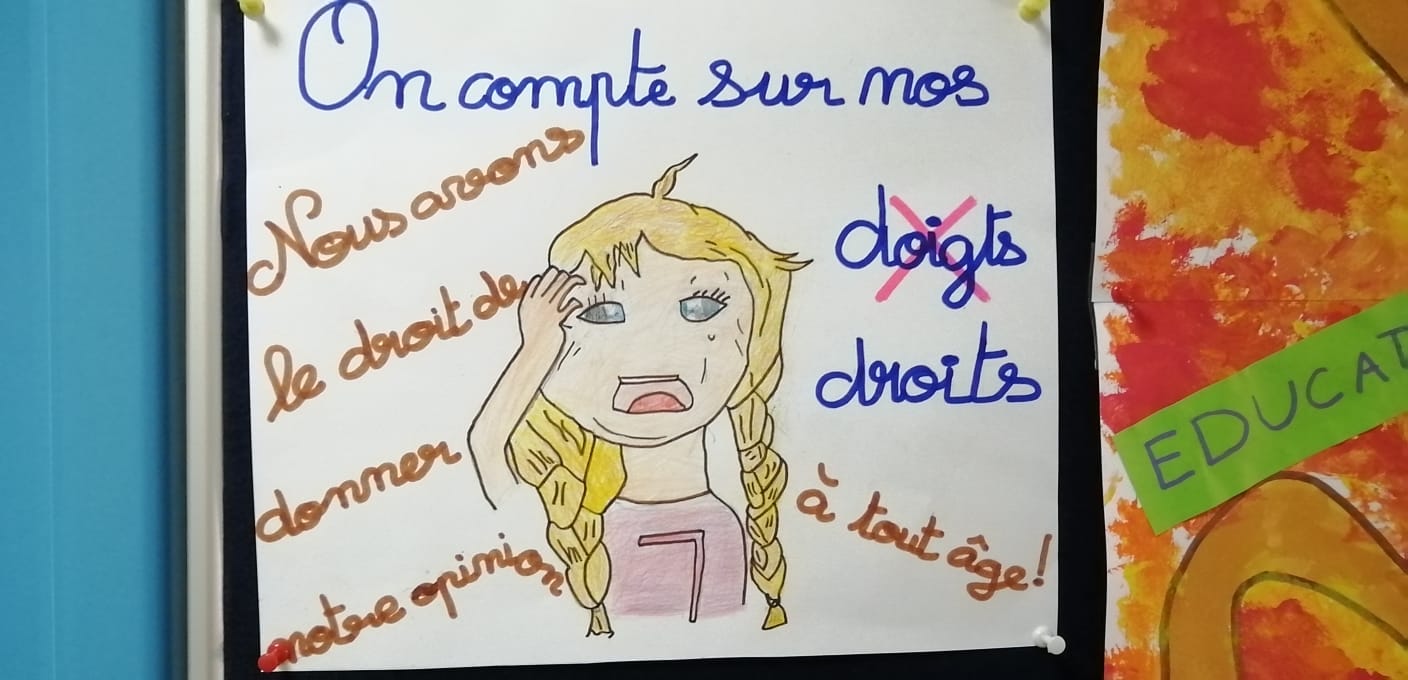 On compte sur nos
doigts
droits
Nous avons
le droit de
donner
notre opinion
à tout âge!
EDUCAT